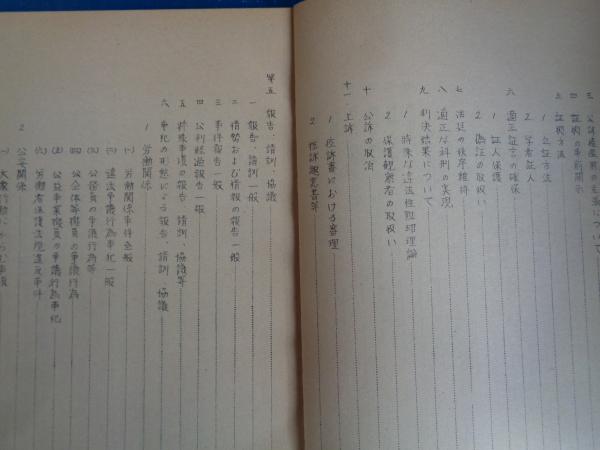 三 公訴権濫用の主張について
四 証拠の事前開示
五 証拠方法
1 立証方法
2 学者証人
六 適正証言の確保
1 証人保護
2 偽証の取扱い
七 法廷の秩序維持
八 適正な科刑の実現
九 判決結果について
1 特殊な違法性阻却理論
2 保護観察者の取扱い
十 公訴の取消
十一 上訴
1 控訴審における審理
2 控訴趣意書等
第五 報告、請訓、協議
一 報告、請訓一般
二 情勢および情報の報告一般
三 事件報告一般
四 公判経過報告一般
五 特殊事項の報告、請訓、協議等
六 事犯の形態による報告、請訓、協議
1 労働関係
(一) 労働関係事件全般
(二) 違法争議行為事犯一般
(三) 公務員の争議行為等
(四) 公企体等職員の争議行為
(五) 公益事業職員の争議行為事犯
(六) 労働者保護法規違反事件
2 公安関係
(一) 大衆行動にからむ事項